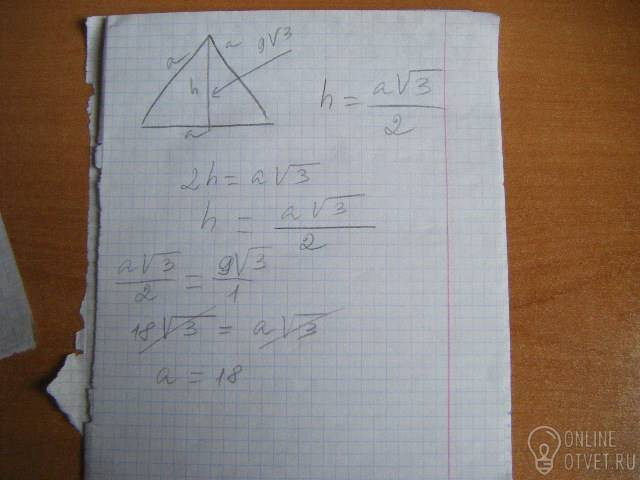 a a 9√3
h
a
h = a√3/2
2h = a√3
h = a√3/2
a√3/2 = 9√3/1
18√3 = a√3
a = 18
ONLINE
OTVET.RU